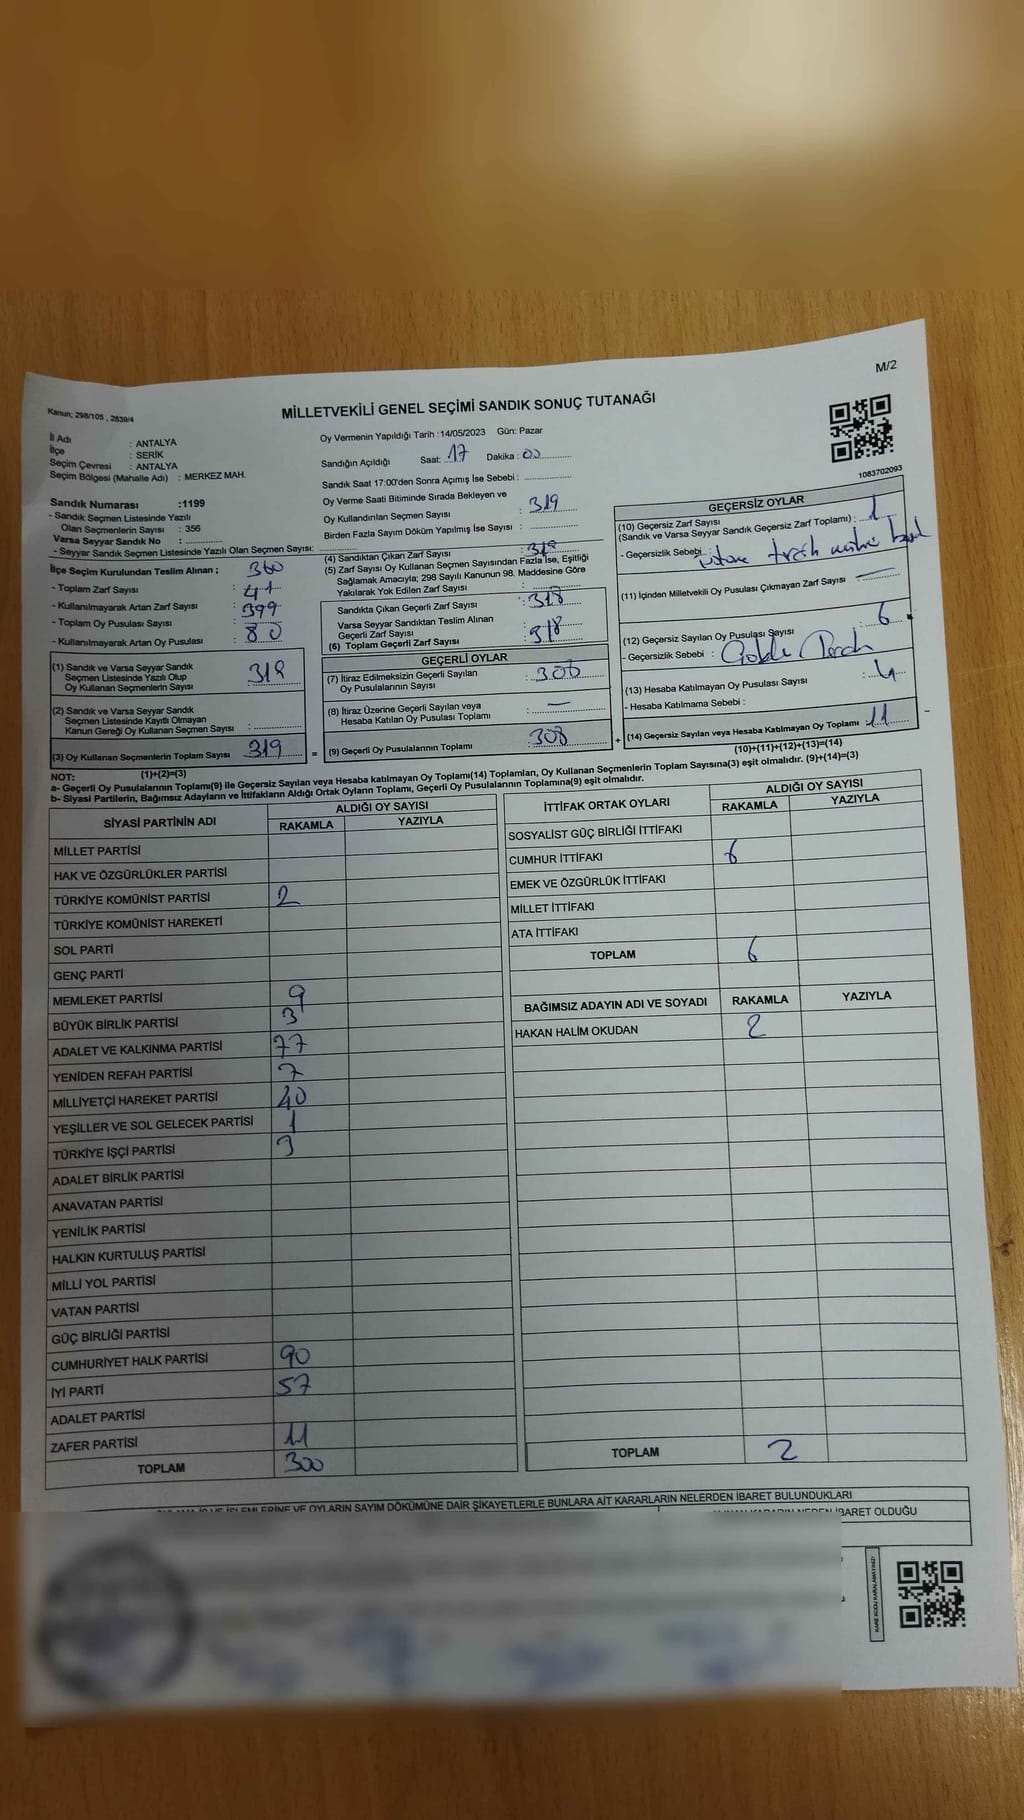 M/2
Kanun; 298/105 , 2839/4
MİLLETVEKİLİ GENEL SEÇİMİ SANDIK SONUÇ TUTANAĞI
İl Adı : ANTALYA
İlçe : SERİK
Seçim Çevresi : ANTALYA
Seçim Bölgesi (Mahalle Adı) : MERKEZ MAH.
Oy Vermenin Yapıldığı Tarih :14/05/2023 Gün: Pazar
Sandığın Açıldığı Saat: 17 Dakika : 00
Sandık Saat 17:00'den Sonra Açımış İse Sebebi :
1083702093
Sandık Numarası :1199
- Sandık Seçmen Listesinde Yazılı
Olan Seçmenlerin Sayısı : 356
Varsa Seyyar Sandık No :
- Seyyar Sandık Seçmen Listesinde Yazılı Olan Seçmen Sayısı:
Oy Verme Saati Bitiminde Sırada Bekleyen ve
Oy Kullandırılan Seçmen Sayısı : 319
Birden Fazla Sayım Döküm Yapılmış İse Sayısı :
İlçe Seçim Kurulundan Teslim Alınan ;
- Toplam Zarf Sayısı : 360
- Kullanılmayarak Artan Zarf Sayısı : 41
- Toplam Oy Pusulası Sayısı : 399
- Kullanılmayarak Artan Oy Pusulası : 80
(1) Sandık ve Varsa Seyyar Sandık
Seçmen Listesinde Yazılı Olup
Oy Kullanan Seçmenlerin Sayısı : 319
(2) Sandık ve Varsa Seyyar Sandık
Seçmen Listesinde Kayıtlı Olmayan
Kanun Gereği Oy Kullanan Seçmen Sayısı :
(3) Oy Kullanan Seçmenlerin Toplam Sayısı 319
(1)+(2)=(3)
(4) Sandıktan Çıkan Zarf Sayısı : 319
(5) Zarf Sayısı Oy Kullanan Seçmen Sayısından Fazla İse, Eşitliği
Sağlamak Amacıyla; 298 Sayılı Kanunun 98. Maddesine Göre
Yakılarak Yok Edilen Zarf Sayısı :
Sandıkta Çıkan Geçerli Zarf Sayısı : 318
Varsa Seyyar Sandıktan Teslim Alınan
Geçerli Zarf Sayısı :
(6) Toplam Geçerli Zarf Sayısı : 318
GEÇERLİ OYLAR
(7) İtiraz Edilmeksizin Geçerli Sayılan
Oy Pusulalarının Sayısı : 308
(8) İtiraz Üzerine Geçerli Sayılan veya
Hesaba Katılan Oy Pusulası Toplamı : —
= (9) Geçerli Oy Pusulalarının Toplamı : 308 +
GEÇERSİZ OYLAR
(10) Geçersiz Zarf Sayısı
(Sandık ve Varsa Seyyar Sandık Geçersiz Zarf Toplamı) : 1
- Geçersizlik Sebebi :
(11) İçinden Milletvekili Oy Pusulası Çıkmayan Zarf Sayısı —
(12) Geçersiz Sayılan Oy Pusulası Sayısı : 6
- Geçersizlik Sebebi :
(13) Hesaba Katılmayan Oy Pusulası Sayısı : 4
- Hesaba Katılmama Sebebi :
(14) Geçersiz Sayılan veya Hesaba Katılmayan Oy Toplamı 11
(10)+(11)+(12)+(13)=(14)
NOT:
a- Geçerli Oy Pusulalarının Toplamı(9) ile Geçersiz Sayılan veya Hesaba katılmayan Oy Toplamı(14) Toplamları, Oy Kullanan Seçmenlerin Toplam Sayısına(3) eşit olmalıdır. (9)+(14)=(3)
b- Siyasi Partilerin, Bağımsız Adayların ve İttifakların Aldığı Ortak Oyların Toplamı, Geçerli Oy Pusulalarının Toplamına(9) eşit olmalıdır.
SİYASİ PARTİNİN ADI ALDIĞI OY SAYISI
RAKAMLA YAZIYLA
MİLLET PARTİSİ
HAK VE ÖZGÜRLÜKLER PARTİSİ
TÜRKİYE KOMÜNİST PARTİSİ 2
TÜRKİYE KOMÜNİST HAREKETİ
SOL PARTİ
GENÇ PARTİ
MEMLEKET PARTİSİ 9
BÜYÜK BİRLİK PARTİSİ 3
ADALET VE KALKINMA PARTİSİ 77
YENİDEN REFAH PARTİSİ 7
MİLLİYETÇİ HAREKET PARTİSİ 40
YEŞİLLER VE SOL GELECEK PARTİSİ 1
TÜRKİYE İŞÇİ PARTİSİ 3
ADALET BİRLİK PARTİSİ
ANAVATAN PARTİSİ
YENİLİK PARTİSİ
HALKIN KURTULUŞ PARTİSİ
MİLLİ YOL PARTİSİ
VATAN PARTİSİ
GÜÇ BİRLİĞİ PARTİSİ
CUMHURİYET HALK PARTİSİ 90
İYİ PARTİ 57
ADALET PARTİSİ
ZAFER PARTİSİ 11
TOPLAM 300
İTTİFAK ORTAK OYLARI ALDIĞI OY SAYISI
RAKAMLA YAZIYLA
SOSYALİST GÜÇ BİRLİĞİ İTTİFAKI
CUMHUR İTTİFAKI 6
EMEK VE ÖZGÜRLÜK İTTİFAKI
MİLLET İTTİFAKI
ATA İTTİFAKI
TOPLAM 6
BAĞIMSIZ ADAYIN ADI VE SOYADI RAKAMLA YAZIYLA
HAKAN HALİM OKUDAN 2
TOPLAM 2
VE İŞLEMLERİNE VE OYLARIN SAYIM DÖKÜMÜNE DAİR ŞİKAYETLERLE BUNLARA AİT KARARLARIN NELERDEN İBARET BULUNDUKLARI
KARARIN NEDEN İBARET OLDUĞU
KARE KODU KARALAMAYINIZ!